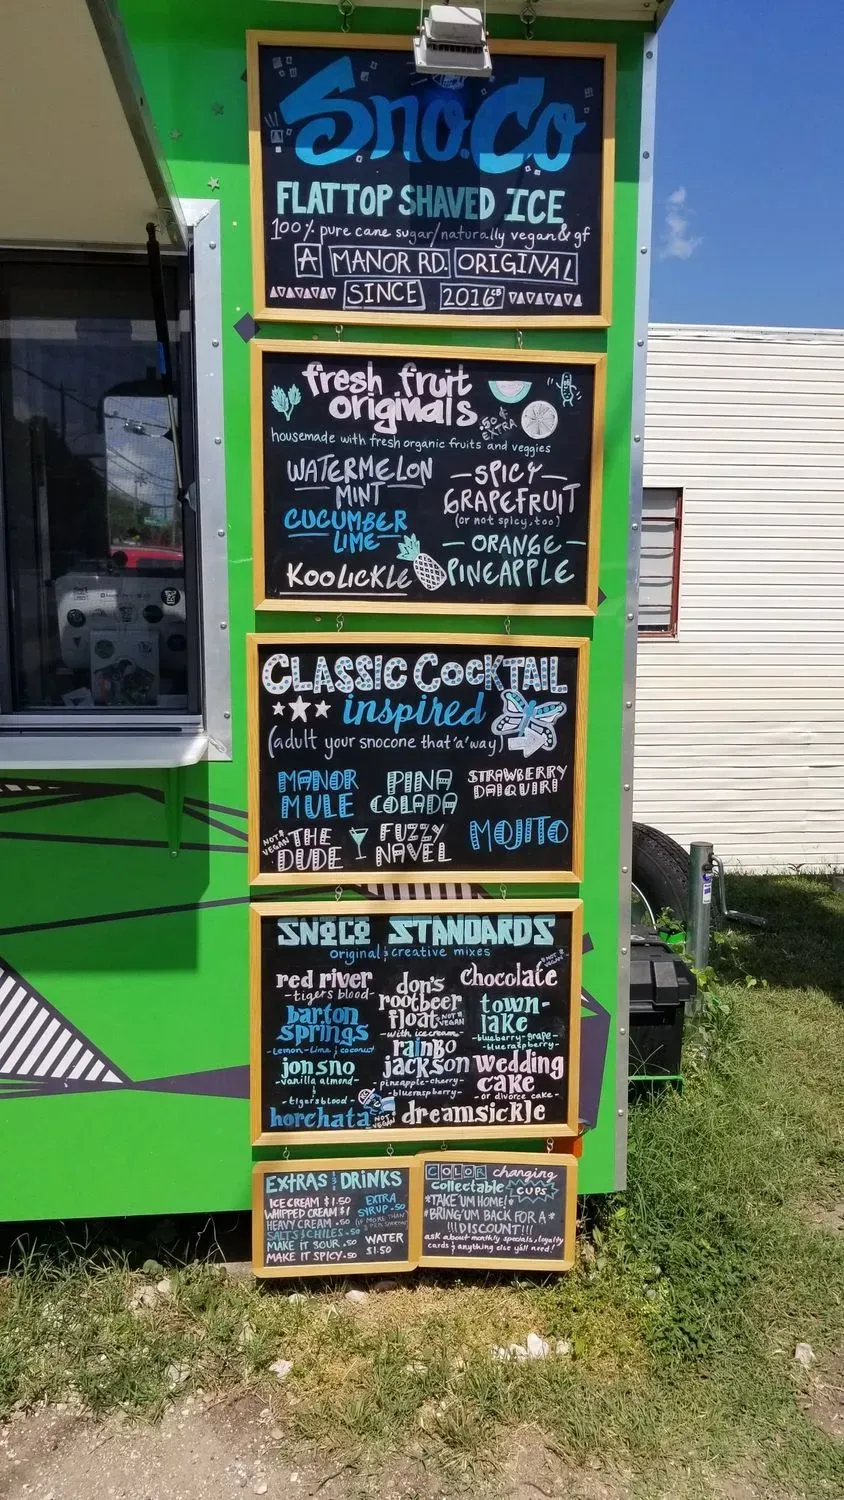 Sno.Co
FLATTOP SHAVED ICE
100% pure cane sugar/naturally vegan & gf
A MANOR RD. ORIGINAL
SINCE 2016
fresh fruit
originals
.50 ¢
EXTRA
housemade with fresh organic fruits and veggies
WATERMELON
MINT
CUCUMBER
LIME
KOOLICKLE
-SPICY-
GRAPEFRUIT
(or not spicy, too)
-ORANGE-
PINEAPPLE
CLASSIC COCKTAIL
inspired
(adult your snocone that 'a' way)
MANOR
MULE
PINA
COLADA
STRAWBERRY
DAIQUIRI
NOT
VEGAN
THE
DUDE
FUZZY
NAVEL
MOJITO
SNOCO STANDARDS
original & creative mixes
red river
-tigers blood-
barton
springs
-lemon-lime & coconut
jon sno
-vanilla almond-
&
-tigersblood-
horchata
NOT
VEGAN
don's
rootbeer
float
NOT
VEGAN
-with icecream-
rainbo
jackson
pineapple-cherry-
-blueraspberry-
dreamsickle
NOT
VEGAN
chocolate
town-
lake
-blueberry-grape-
-blueraspberry-
wedding
cake
-or divorce cake-
EXTRAS & DRINKS
ICE CREAM $1.50
WHIPPED CREAM $1
HEAVY CREAM .50
SALTS & CHILES .50
MAKE IT SOUR .50
MAKE IT SPICY .50
EXTRA
SYRUP .50
WATER
$1.50
COLOR changing
collectable CUPS
*TAKE 'UM HOME!*
*BRING 'UM BACK FOR A*
!!!DISCOUNT!!!
ask about monthly specials, loyalty
cards & anything else yall need!